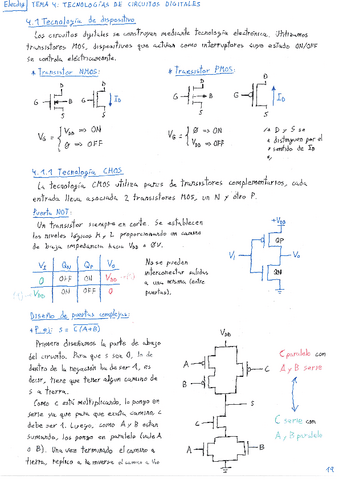 TEMA 4: TECNOLOGÍAS DE CIRCUITOS DIGITALES
4.1 Tecnología de dispositivo
Los circuitos digitales se construyen mediante tecnología electrónica. Utilizamos
transistores MOS, dispositivos que actúan como interruptores cuyo estado ON/OFF
se controla eléctricamente.
* Transistor NMOS:
* Transistor PMOS:
D
D
D
D
G
B
G
I_D
G
B
G
I_D
S
S
S
S
V_G = { V_DD => ON
0 => OFF
V_G = { 0 => ON
V_DD => OFF
D y S se
distinguen por el
sentido de I_D
4.1.1 Tecnología CMOS
La tecnología CMOS utiliza pares de transistores complementarios, cada
entrada lleva asociada 2 transistores MOS, un N y otro P.
Puerta NOT:
Un transistor siempre en corte. Se establecen
los niveles lógicos H y L proporcionando un camino
de baja impedancia hacia V_DD o 0V.
+V_DD
QP
V_I
V_O
QN
V_I Q_N Q_P V_O
0 OFF ON V_DD
V_DD ON OFF 0
No se pueden
interconectar salidas
a una misma (entre
puertas).
Diseño de puertas complejas:
* P. ej: S = C(A+B)
Primero diseñamos la parte de abajo
del circuito. Para que S sea 0, lo de
dentro de la negación ha de ser 1, es
decir, tiene que tener algún camino de
S a tierra.
Como C está multiplicando, lo pongo en
serie ya que para que exista camino, C
debe ser 1. Luego, como A y B están
sumando, los pongo en paralelo (vale A
o B). Una vez terminado el camino a
tierra, replico a la inversa el camino a V_DD
V_DD
A
B
C
S
C
A
B
C paralelo con
A y B serie
C serie con
A y B paralelo